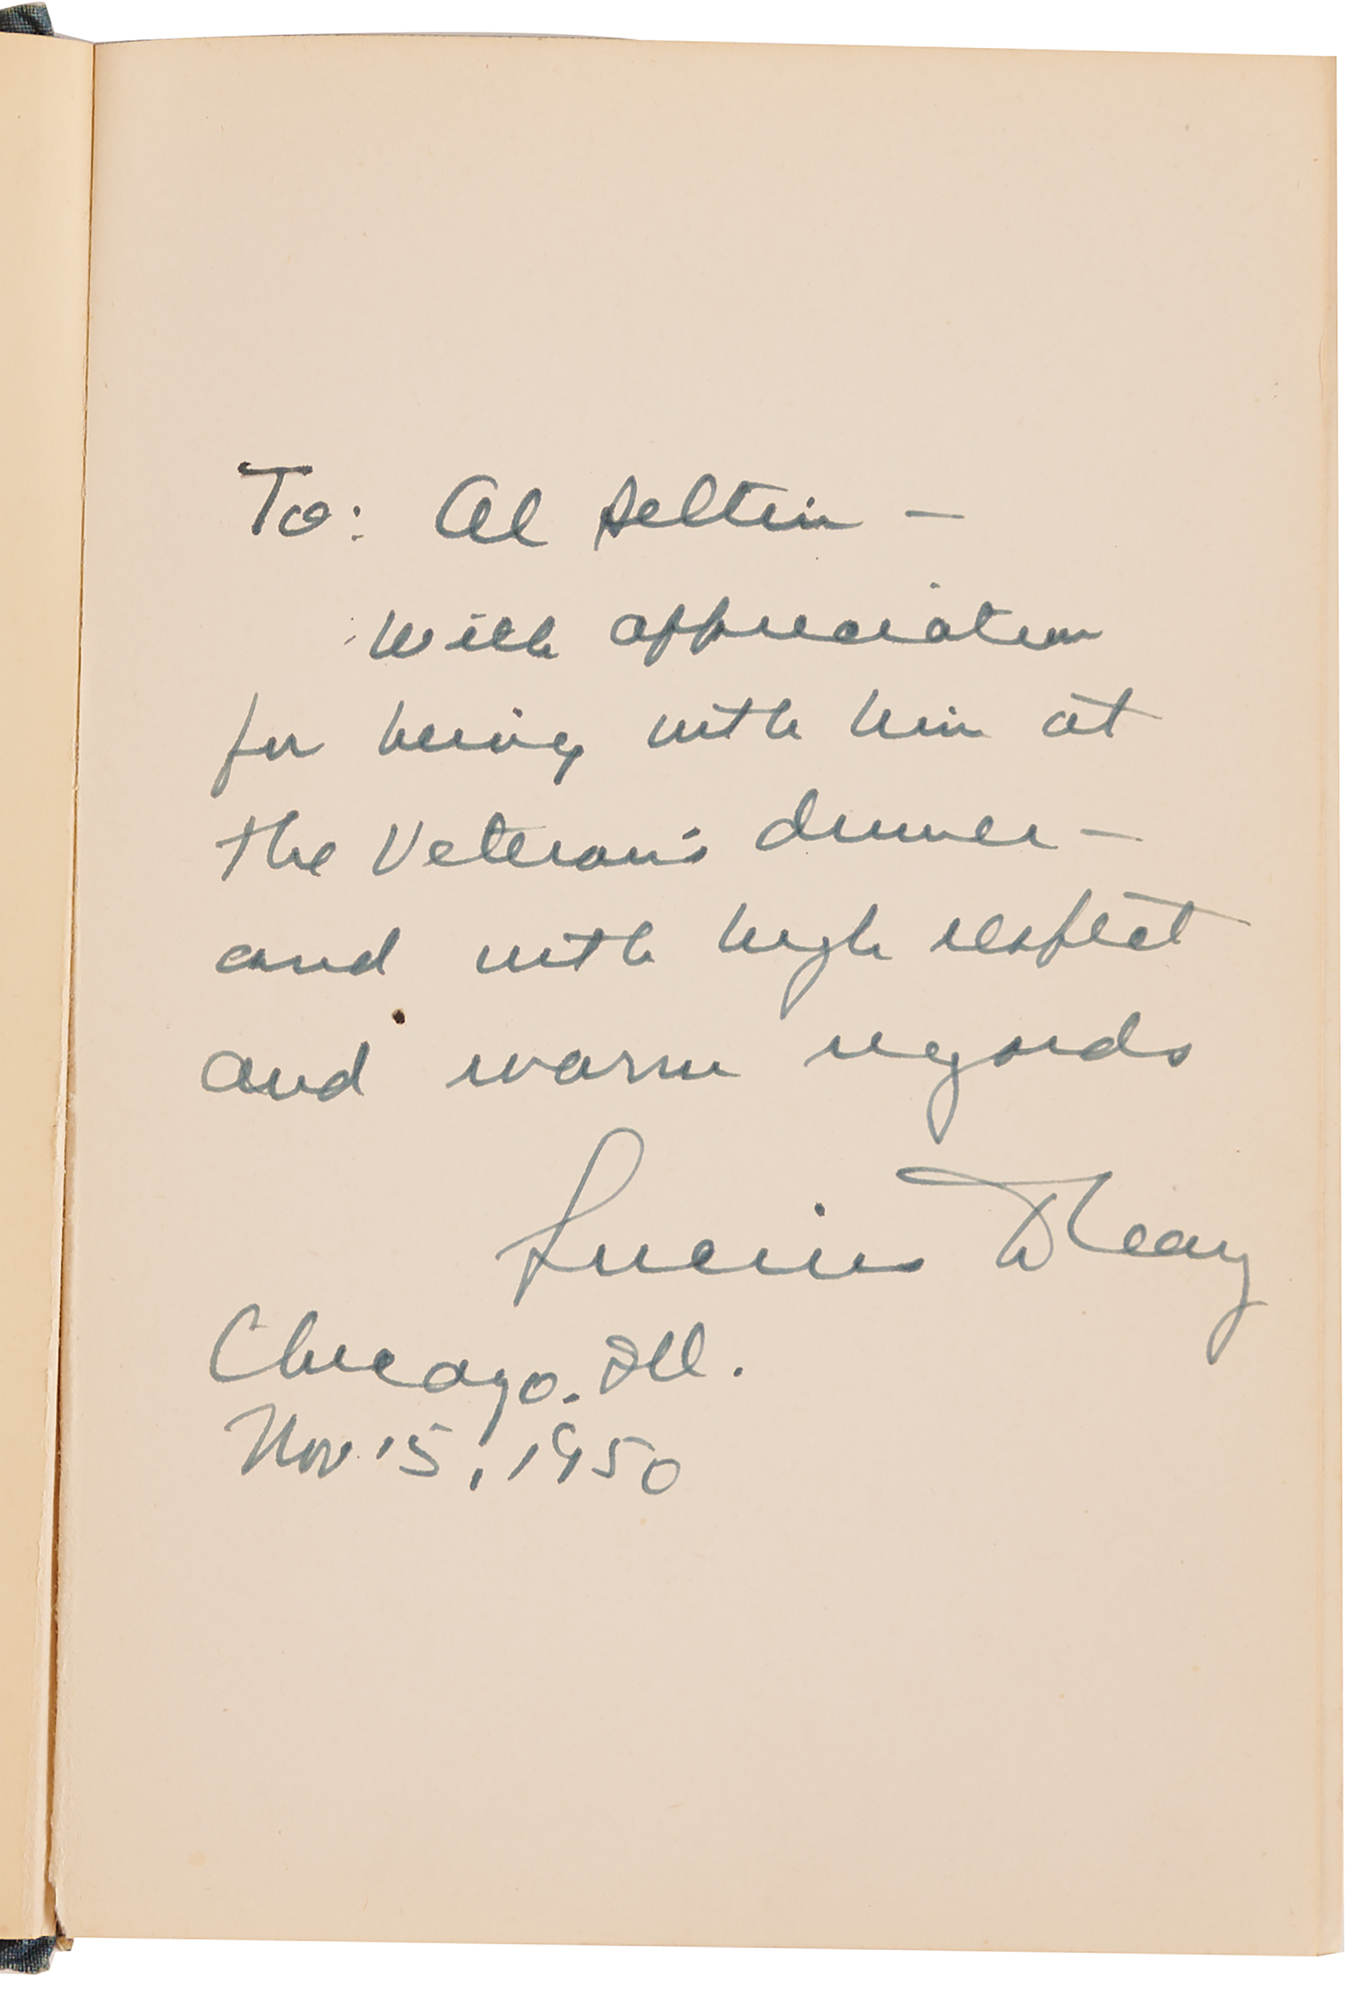 To: Al Seltin —
With appreciation
for being with him at
the Veteran's dinner —
and with high respect
and warm regards
Lucius D Clay
Chicago. Ill.
Nov 15, 1950